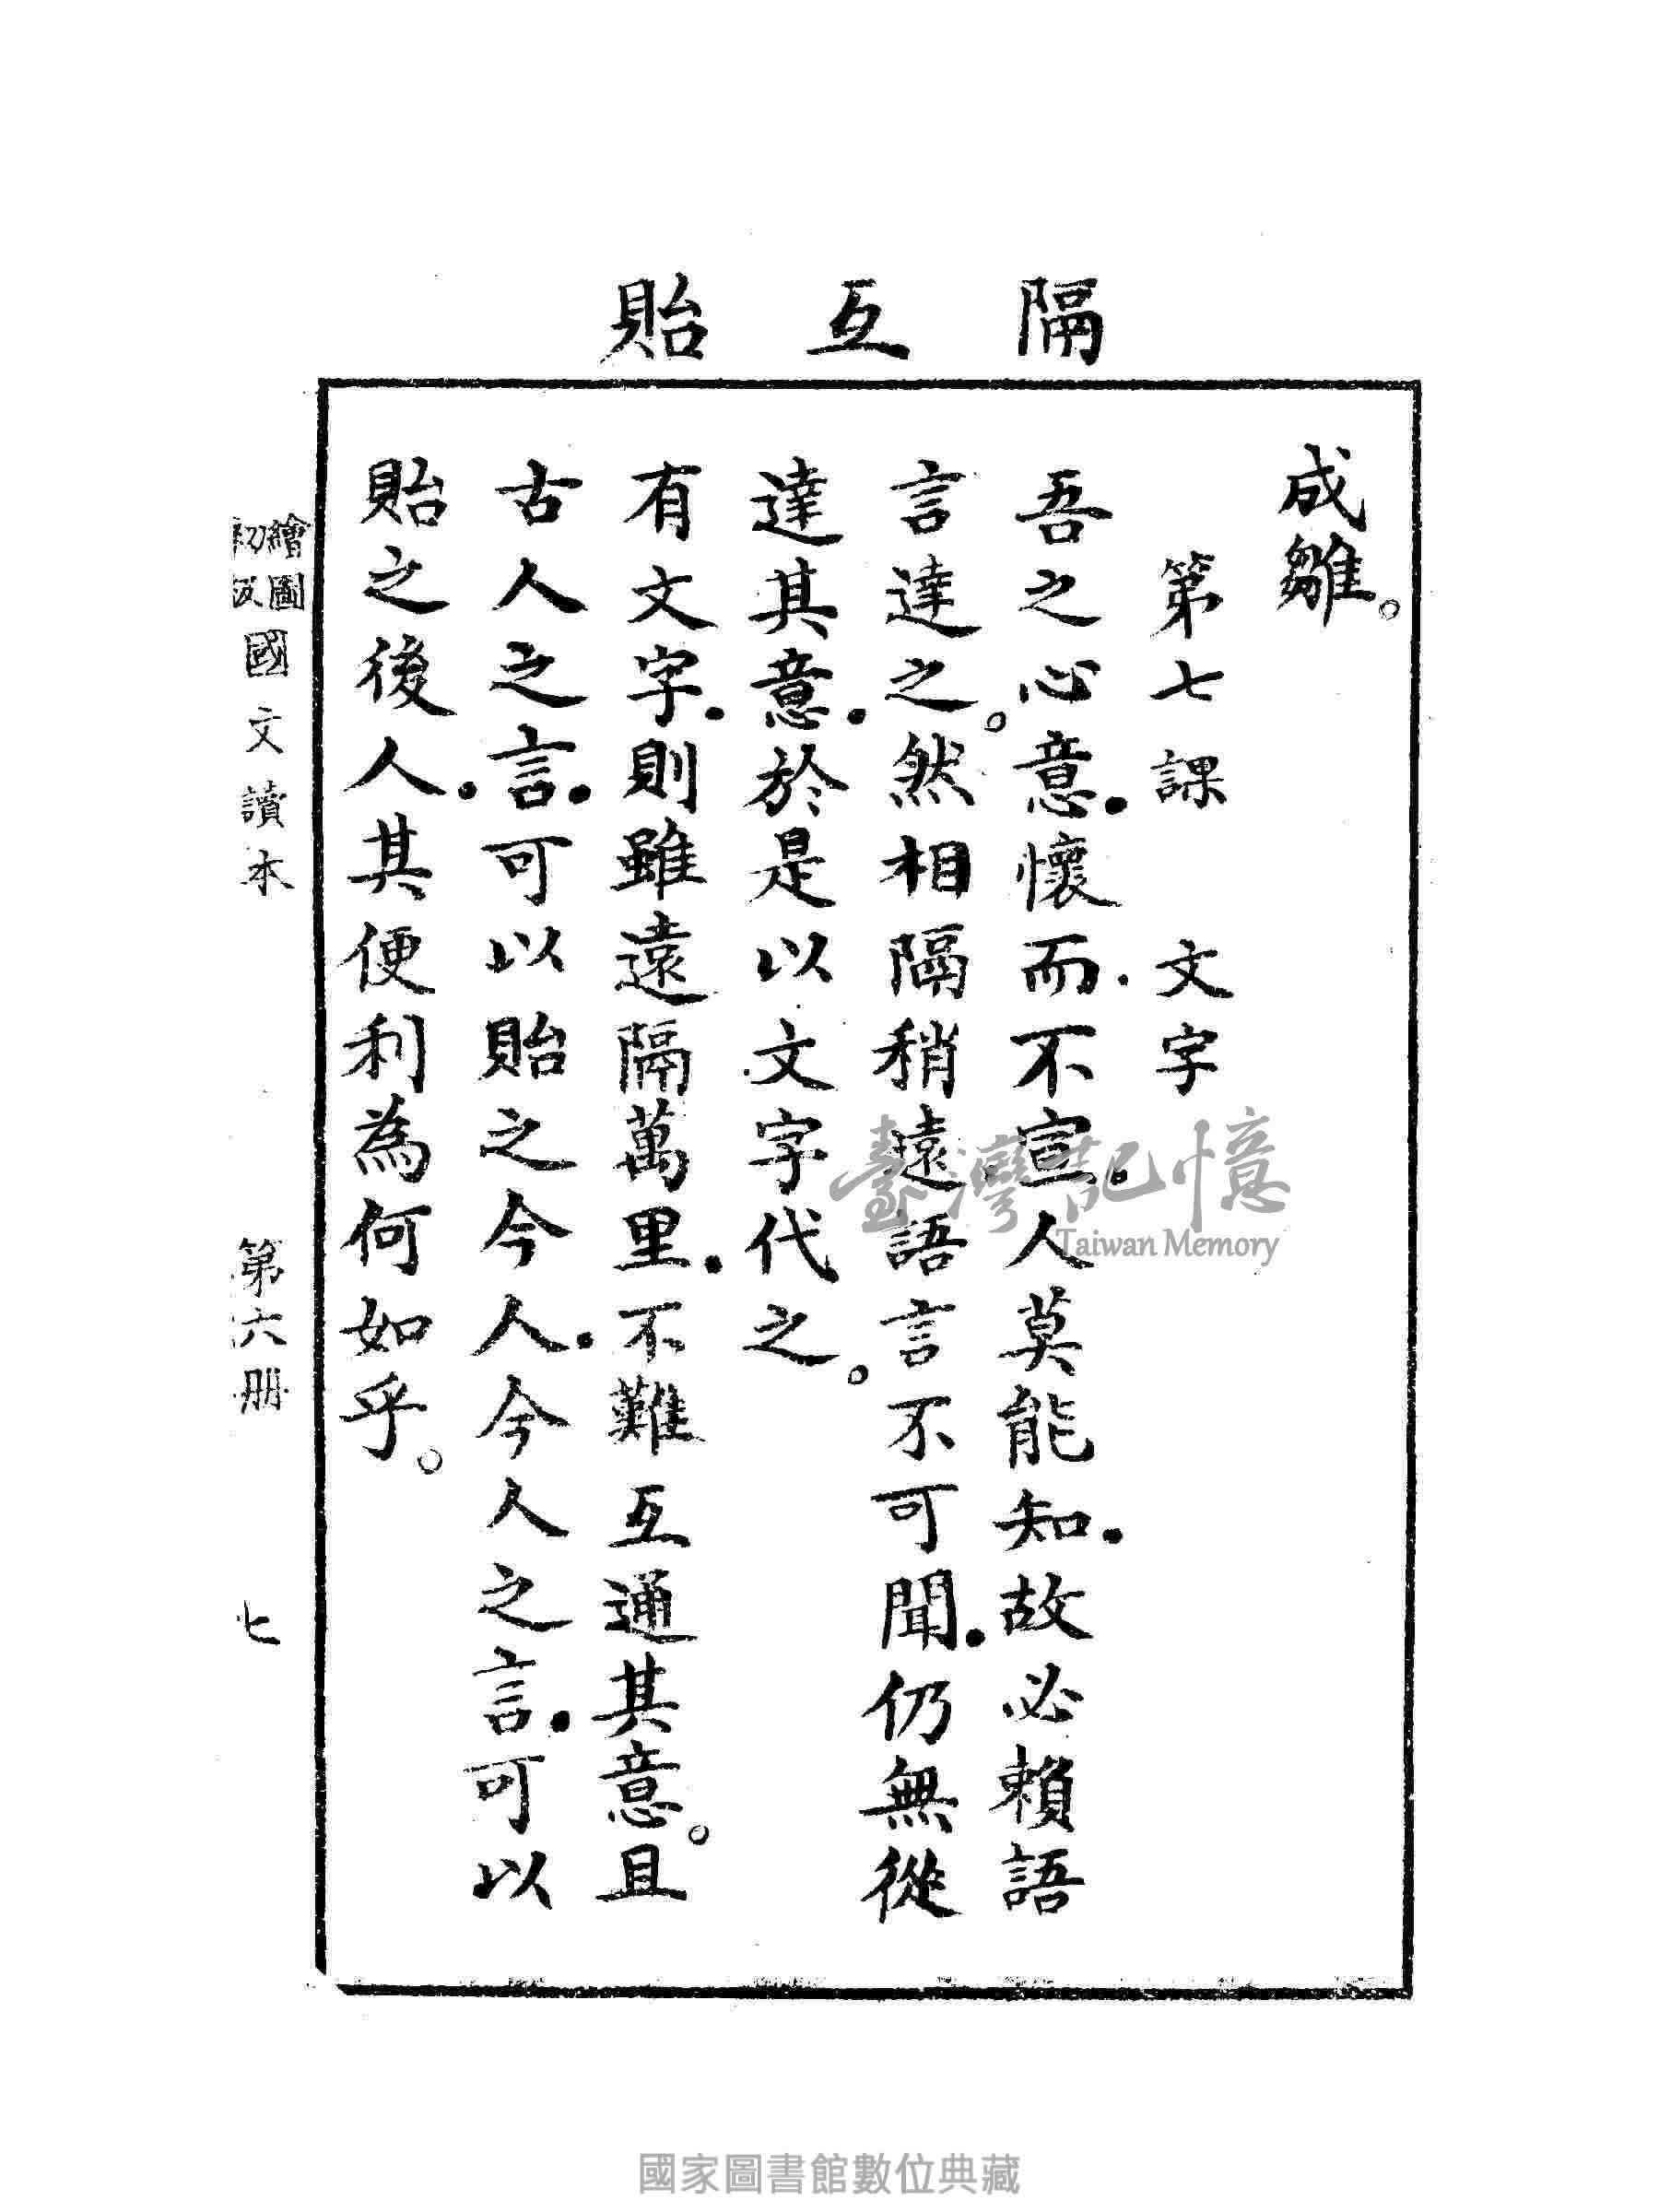 隔 互 貽
成雛。
第七課 文字
吾之心意.懷而.不宣.人莫能知.故必賴語
言達之。然相隔稍遠.語言不可聞.仍無從
達其意.於是以文字代之。
有文字.則雖遠隔萬里.不難互通其意。且
古人之言.可以貽之今人.今人之言.可以
貽之後人.其便利為何如乎。
繪圖初級國文讀本 第六册 七
臺灣記憶
Taiwan Memory
國家圖書館數位典藏